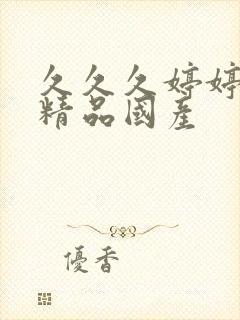 久久久婷婷
精品國產
優香